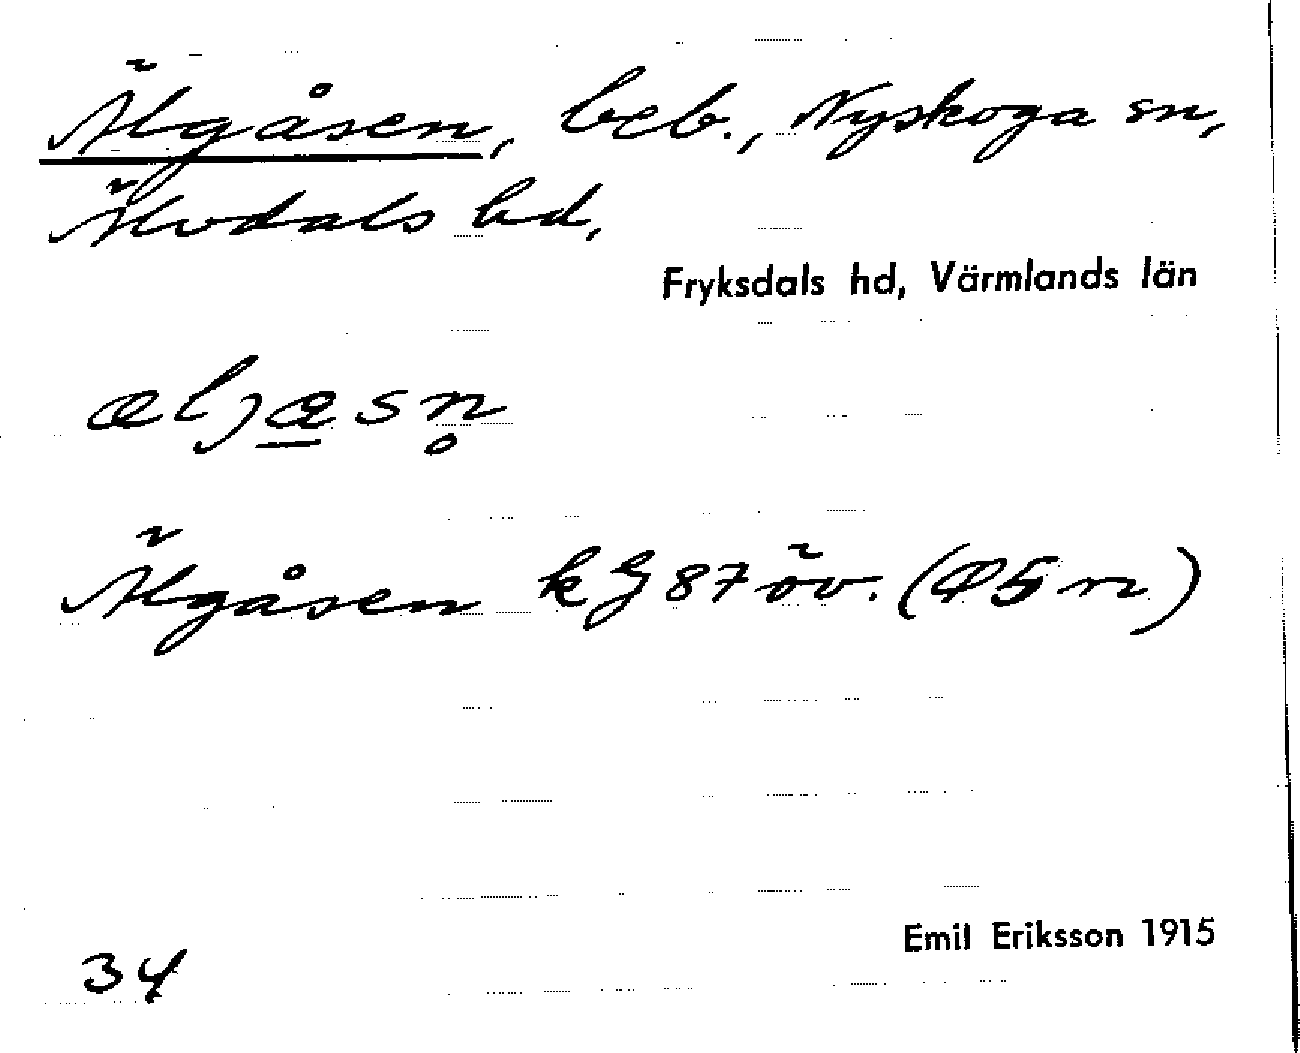 Älgåsen, beb., Nyskoga sn,
Älvdals hd,
Fryksdals hd, Värmlands län
Älgåsen kG 87 öv.
Emil Eriksson 1915
34